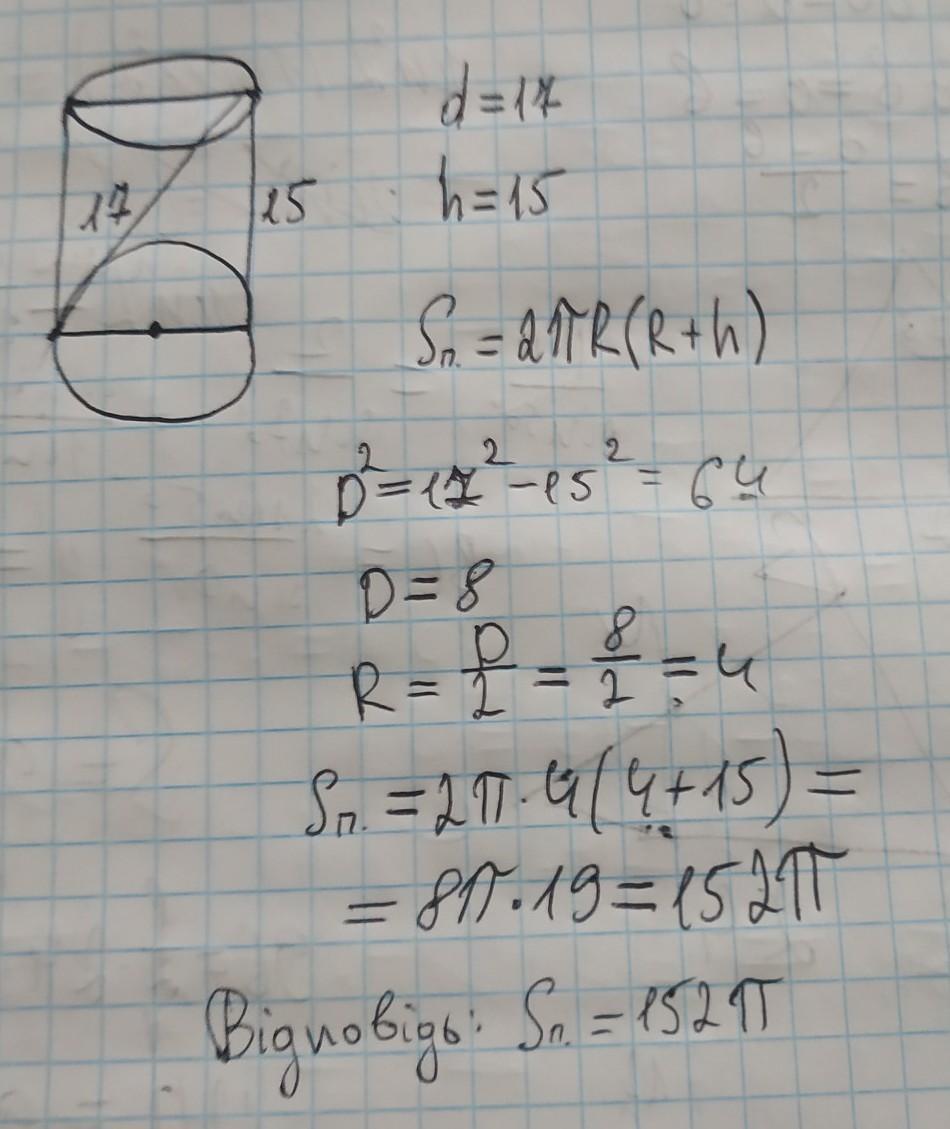 d = 17
17
15
h = 15
Sп. = 2πR(R+h)
D² = 17² - 15² = 64
D = 8
R = D/2 = 8/2 = 4
Sп. = 2π · 4(4+15) =
= 8π · 19 = 152π
Відповідь: Sп. = 152π